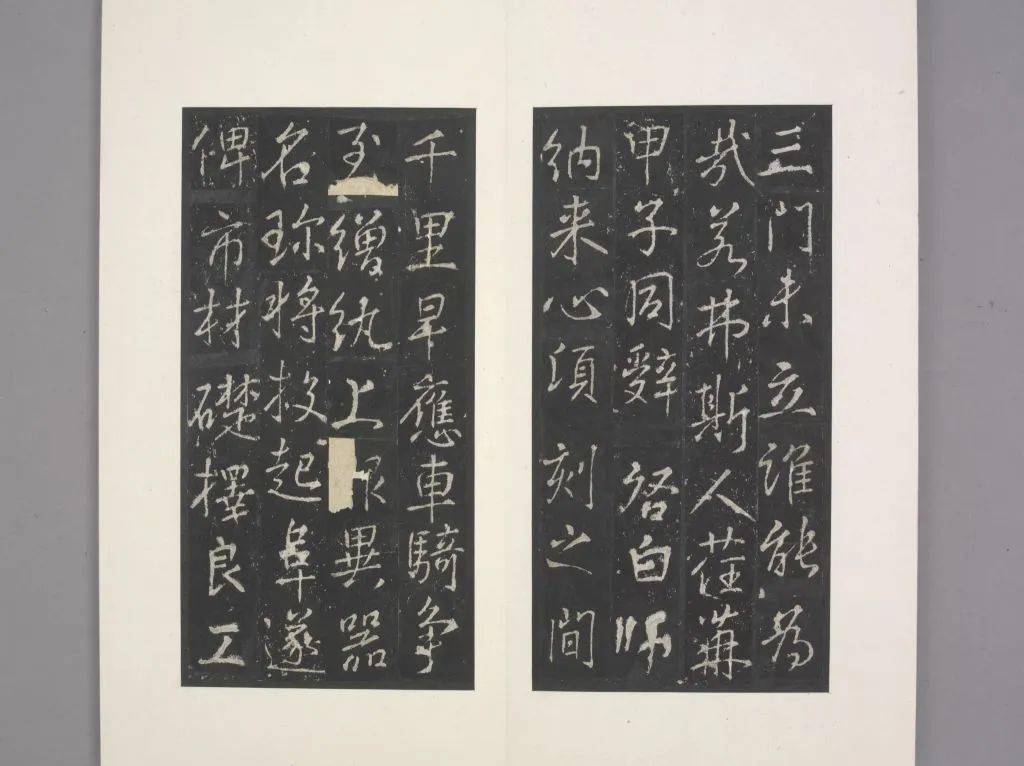 三門未立誰能為
哉若弗斯人荏苒
甲子同辭啓白師
納来心湏刻之間
千里早應車騎争
至繒紈上異器
名珎將投起阜遂
俾市材礎擇良工